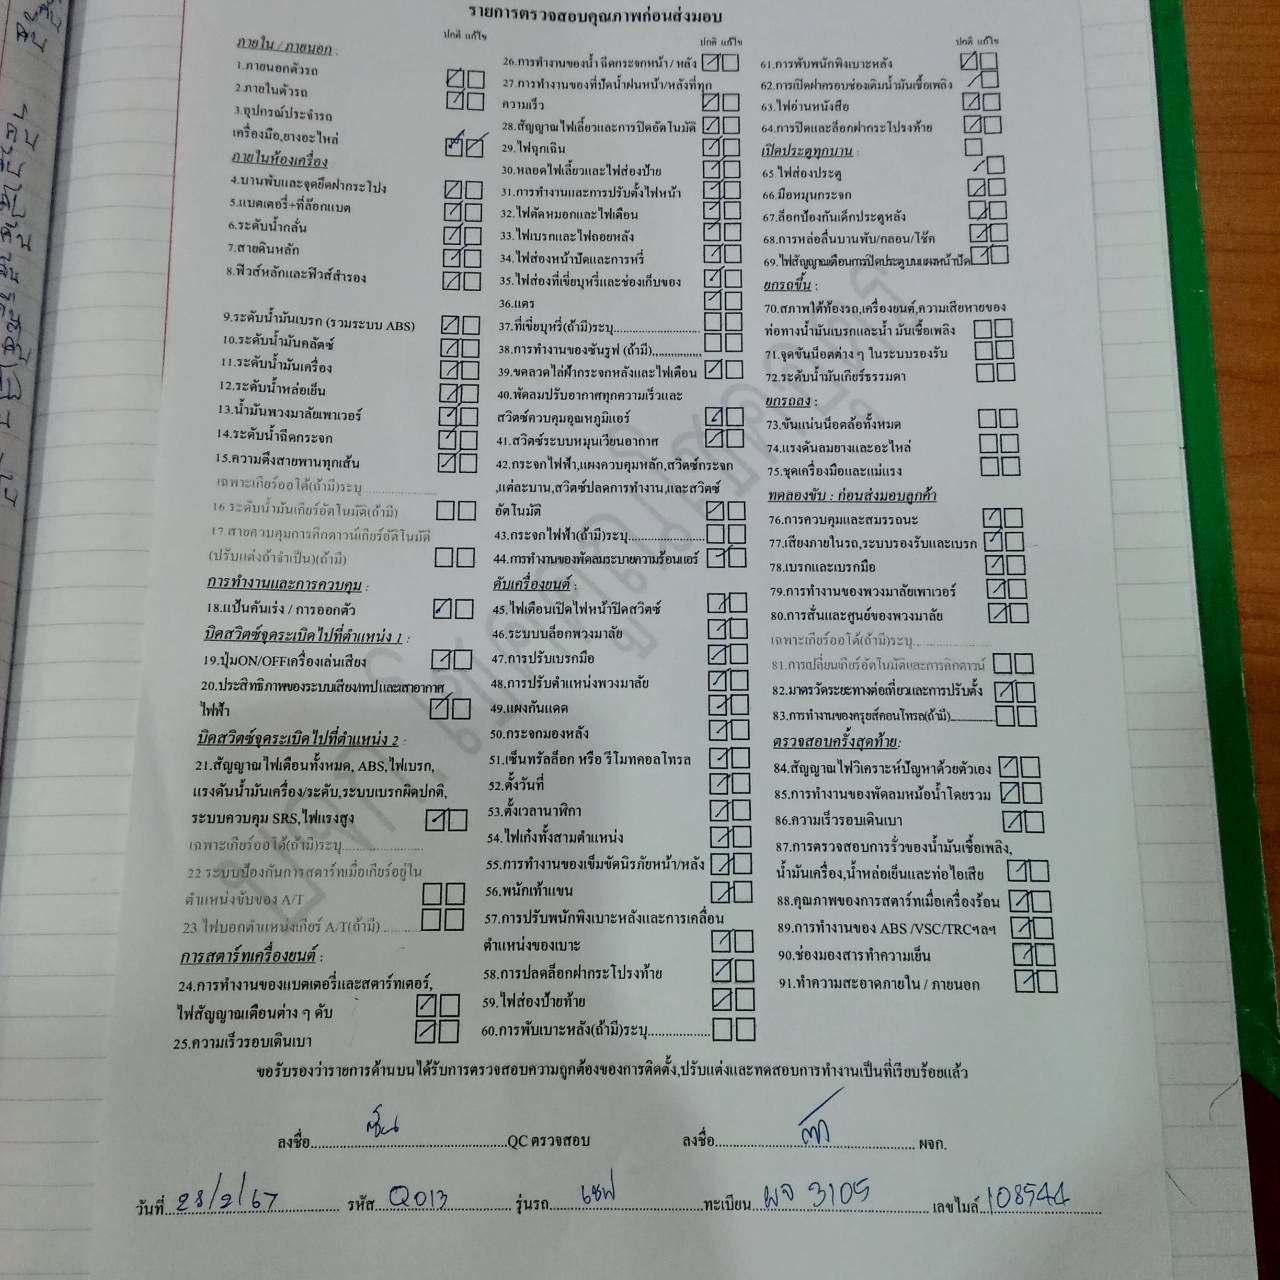 รายการตรวจสอบคุณภาพก่อนส่งมอบ
ปกติ แก้ไข
ภายใน / ภายนอก :
1.ภายนอกตัวรถ
2.ภายในตัวรถ
3.อุปกรณ์ประจำรถ
เครื่องมือ,ยางอะไหล่
ภายในห้องเครื่อง
4.บานพับและจุดยึดฝากระโปง
5.แบตเตอรี่+ที่ล๊อกแบต
6.ระดับน้ำกลั่น
7.สายดินหลัก
8.ฟิวส์หลักและฟิวส์สำรอง
9.ระดับน้ำมันเบรก (รวมระบบ ABS)
10.ระดับน้ำมันคลัตช์
11.ระดับน้ำมันเครื่อง
12.ระดับน้ำหล่อเย็น
13.น้ำมันพวงมาลัยเพาเวอร์
14.ระดับน้ำฉีดกระจก
15.ความตึงสายพานทุกเส้น
เฉพาะเกียร์ออโต้(ถ้ามี)ระบุ
16.ระดับน้ำมันเกียร์อัตโนมัติ(ถ้ามี)
17.สายควบคุมการคิกดาวน์เกียร์อัติโนมัติ
(ปรับแต่งถ้าจำเป็น)(ถ้ามี)
การทำงานและการควบคุม :
18.แป้นคันเร่ง / การออกตัว
บิดสวิตซ์จุดระเบิดไปที่ตำแหน่ง 1 :
19.ปุ่มON/OFFเครื่องเล่นเสียง
20.ประสิทธิภาพของระบบเสียง/เทปและเสาอากาศ
ไฟฟ้า
บิดสวิตซ์จุดระเบิดไปที่ตำแหน่ง 2 :
21.สัญญาณไฟเตือนทั้งหมด, ABS,ไฟเบรก,
แรงดันน้ำมันเครื่อง/ระดับ,ระบบเบรกผิดปกติ,
ระบบควบคุม SRS,ไฟแรงสูง
เฉพาะเกียร์ออโต้(ถ้ามี)ระบุ
22.ระบบป้องกันการสตาร์ทเมื่อเกียร์อยู่ใน
ตำแหน่งขับของ A/T
23.ไฟบอกตำแหน่งเกียร์ A/T(ถ้ามี)
การสตาร์ทเครื่องยนต์ :
24.การทำงานของแบตเตอรี่และสตาร์ทเตอร์,
ไฟสัญญาณเตือนต่าง ๆ ดับ
25.ความเร็วรอบเดินเบา
ปกติ แก้ไข
26.การทำงานของน้ำ ฉีดกระจกหน้า / หลัง
27.การทำงานของที่ปัดน้ำฝนหน้า/หลังที่ทุก
ความเร็ว
28.สัญญาณไฟเลี้ยวและการปิดอัตโนมัติ
29.ไฟฉุกเฉิน
30.หลอดไฟเลี้ยวและไฟส่องป้าย
31.การทำงานและการปรับตั้งไฟหน้า
32.ไฟตัดหมอกและไฟเตือน
33.ไฟเบรกและไฟถอยหลัง
34.ไฟส่องหน้าปัดและการหรี่
35.ไฟส่องที่เขี่ยบุหรี่และช่องเก็บของ
36.แตร
37.ที่เขี่ยบุหรี่(ถ้ามี)ระบุ
38.การทำงานของซันรูฟ (ถ้ามี)
39.ขดลวดไล่ฝ้ากระจกหลังและไฟเตือน
40.พัดลมปรับอากาศทุกความเร็วและ
สวิตซ์ควบคุมอุณหภูมิแอร์
41.สวิตซ์ระบบหมุนเวียนอากาศ
42.กระจกไฟฟ้า,แผงควบคุมหลัก,สวิตซ์กระจก
,แต่ละบาน,สวิตซ์ปลดการทำงาน,และสวิตซ์
อัตโนมัติ
43.กระจกไฟฟ้า(ถ้ามี)ระบุ
44.การทำงานของพัดลมระบายความร้อนแอร์
ดับเครื่องยนต์ :
45.ไฟเตือนเปิดไฟหน้าปิดสวิตซ์
46.ระบบล็อกพวงมาลัย
47.การปรับเบรกมือ
48.การปรับตำแหน่งพวงมาลัย
49.แผงกันแดด
50.กระจกมองหลัง
51.เซ็นทรัลล็อก หรือ รีโมทคอลโทรล
52.ตั้งวันที่
53.ตั้งเวลานาฬิกา
54.ไฟเก๋งทั้งสามตำแหน่ง
55.การทำงานของเข็มขัดนิรภัยหน้า/หลัง
56.พนักเท้าแขน
57.การปรับพนักพิงเบาะหลังและการเคลื่อน
ตำแหน่งของเบาะ
58.การปลดล็อกฝากระโปรงท้าย
59.ไฟส่องป้ายท้าย
60.การพับเบาะหลัง(ถ้ามี)ระบุ
ปกติ แก้ไข
61.การพับพนักพิงเบาะหลัง
62.การเปิดฝาครอบช่องเติมน้ำมันเชื้อเพลิง
63.ไฟอ่านหนังสือ
64.การปิดและล็อกฝากระโปรงท้าย
เปิดประตูทุกบาน :
65.ไฟส่องประตู
66.มือหมุนกระจก
67.ล็อกป้องกันเด็กประตูหลัง
68.การหล่อลื่นบานพับ/กลอน/โช๊ค
69.ไฟสัญญาณเตือนการปิดประตูบนแผงหน้าปัด
ยกรถขึ้น :
70.สภาพใต้ท้องรถ,เครื่องยนต์,ความเสียหายของ
ท่อทางน้ำมันเบรกและน้ำ มันเชื้อเพลิง
71.จุดขันน็อตต่าง ๆ ในระบบรองรับ
72.ระดับน้ำมันเกียร์ธรรมดา
ยกรถลง :
73.ขันแน่นน็อตล้อทั้งหมด
74.แรงดันลมยางและอะไหล่
75.ชุดเครื่องมือและแม่แรง
ทดลองขับ : ก่อนส่งมอบลูกค้า
76.การควบคุมและสมรรถนะ
77.เสียงภายในรถ,ระบบรองรับและเบรก
78.เบรกและเบรกมือ
79.การทำงานของพวงมาลัยเพาเวอร์
80.การสั่นและศูนย์ของพวงมาลัย
เฉพาะเกียร์ออโต้(ถ้ามี)ระบุ
81.การเปลี่ยนเกียร์อัตโนมัติและการคิกดาวน์
82.มาตรวัดระยะทางต่อเที่ยวและการปรับตั้ง
83.การทำงานของครุยส์คอนโทรล(ถ้ามี)
ตรวจสอบครั้งสุดท้าย:
84.สัญญาณไฟวิเคราะห์ปัญหาด้วยตัวเอง
85.การทำงานของพัดลมหม้อน้ำโดยรวม
86.ความเร็วรอบเดินเบา
87.การตรวจสอบการรั่วของน้ำมันเชื้อเพลิง,
น้ำมันเครื่อง,น้ำหล่อเย็นและท่อไอเสีย
88.คุณภาพของการสตาร์ทเมื่อเครื่องร้อน
89.การทำงานของ ABS /VSC/TRCฯลฯ
90.ช่องมองสารทำความเย็น
91.ทำความสะอาดภายใน / ภายนอก
ขอรับรองว่ารายการด้านบนได้รับการตรวจสอบความถูกต้องของการติดตั้ง,ปรับแต่งและทดสอบการทำงานเป็นที่เรียบร้อยแล้ว
ลงชื่อ QC ตรวจสอบ ลงชื่อ ผจก.
วันที่ 28/2/67 รหัส Q013 รุ่นรถ เชฟ ทะเบียน ผจ 3105 เลขไมล์ 108544